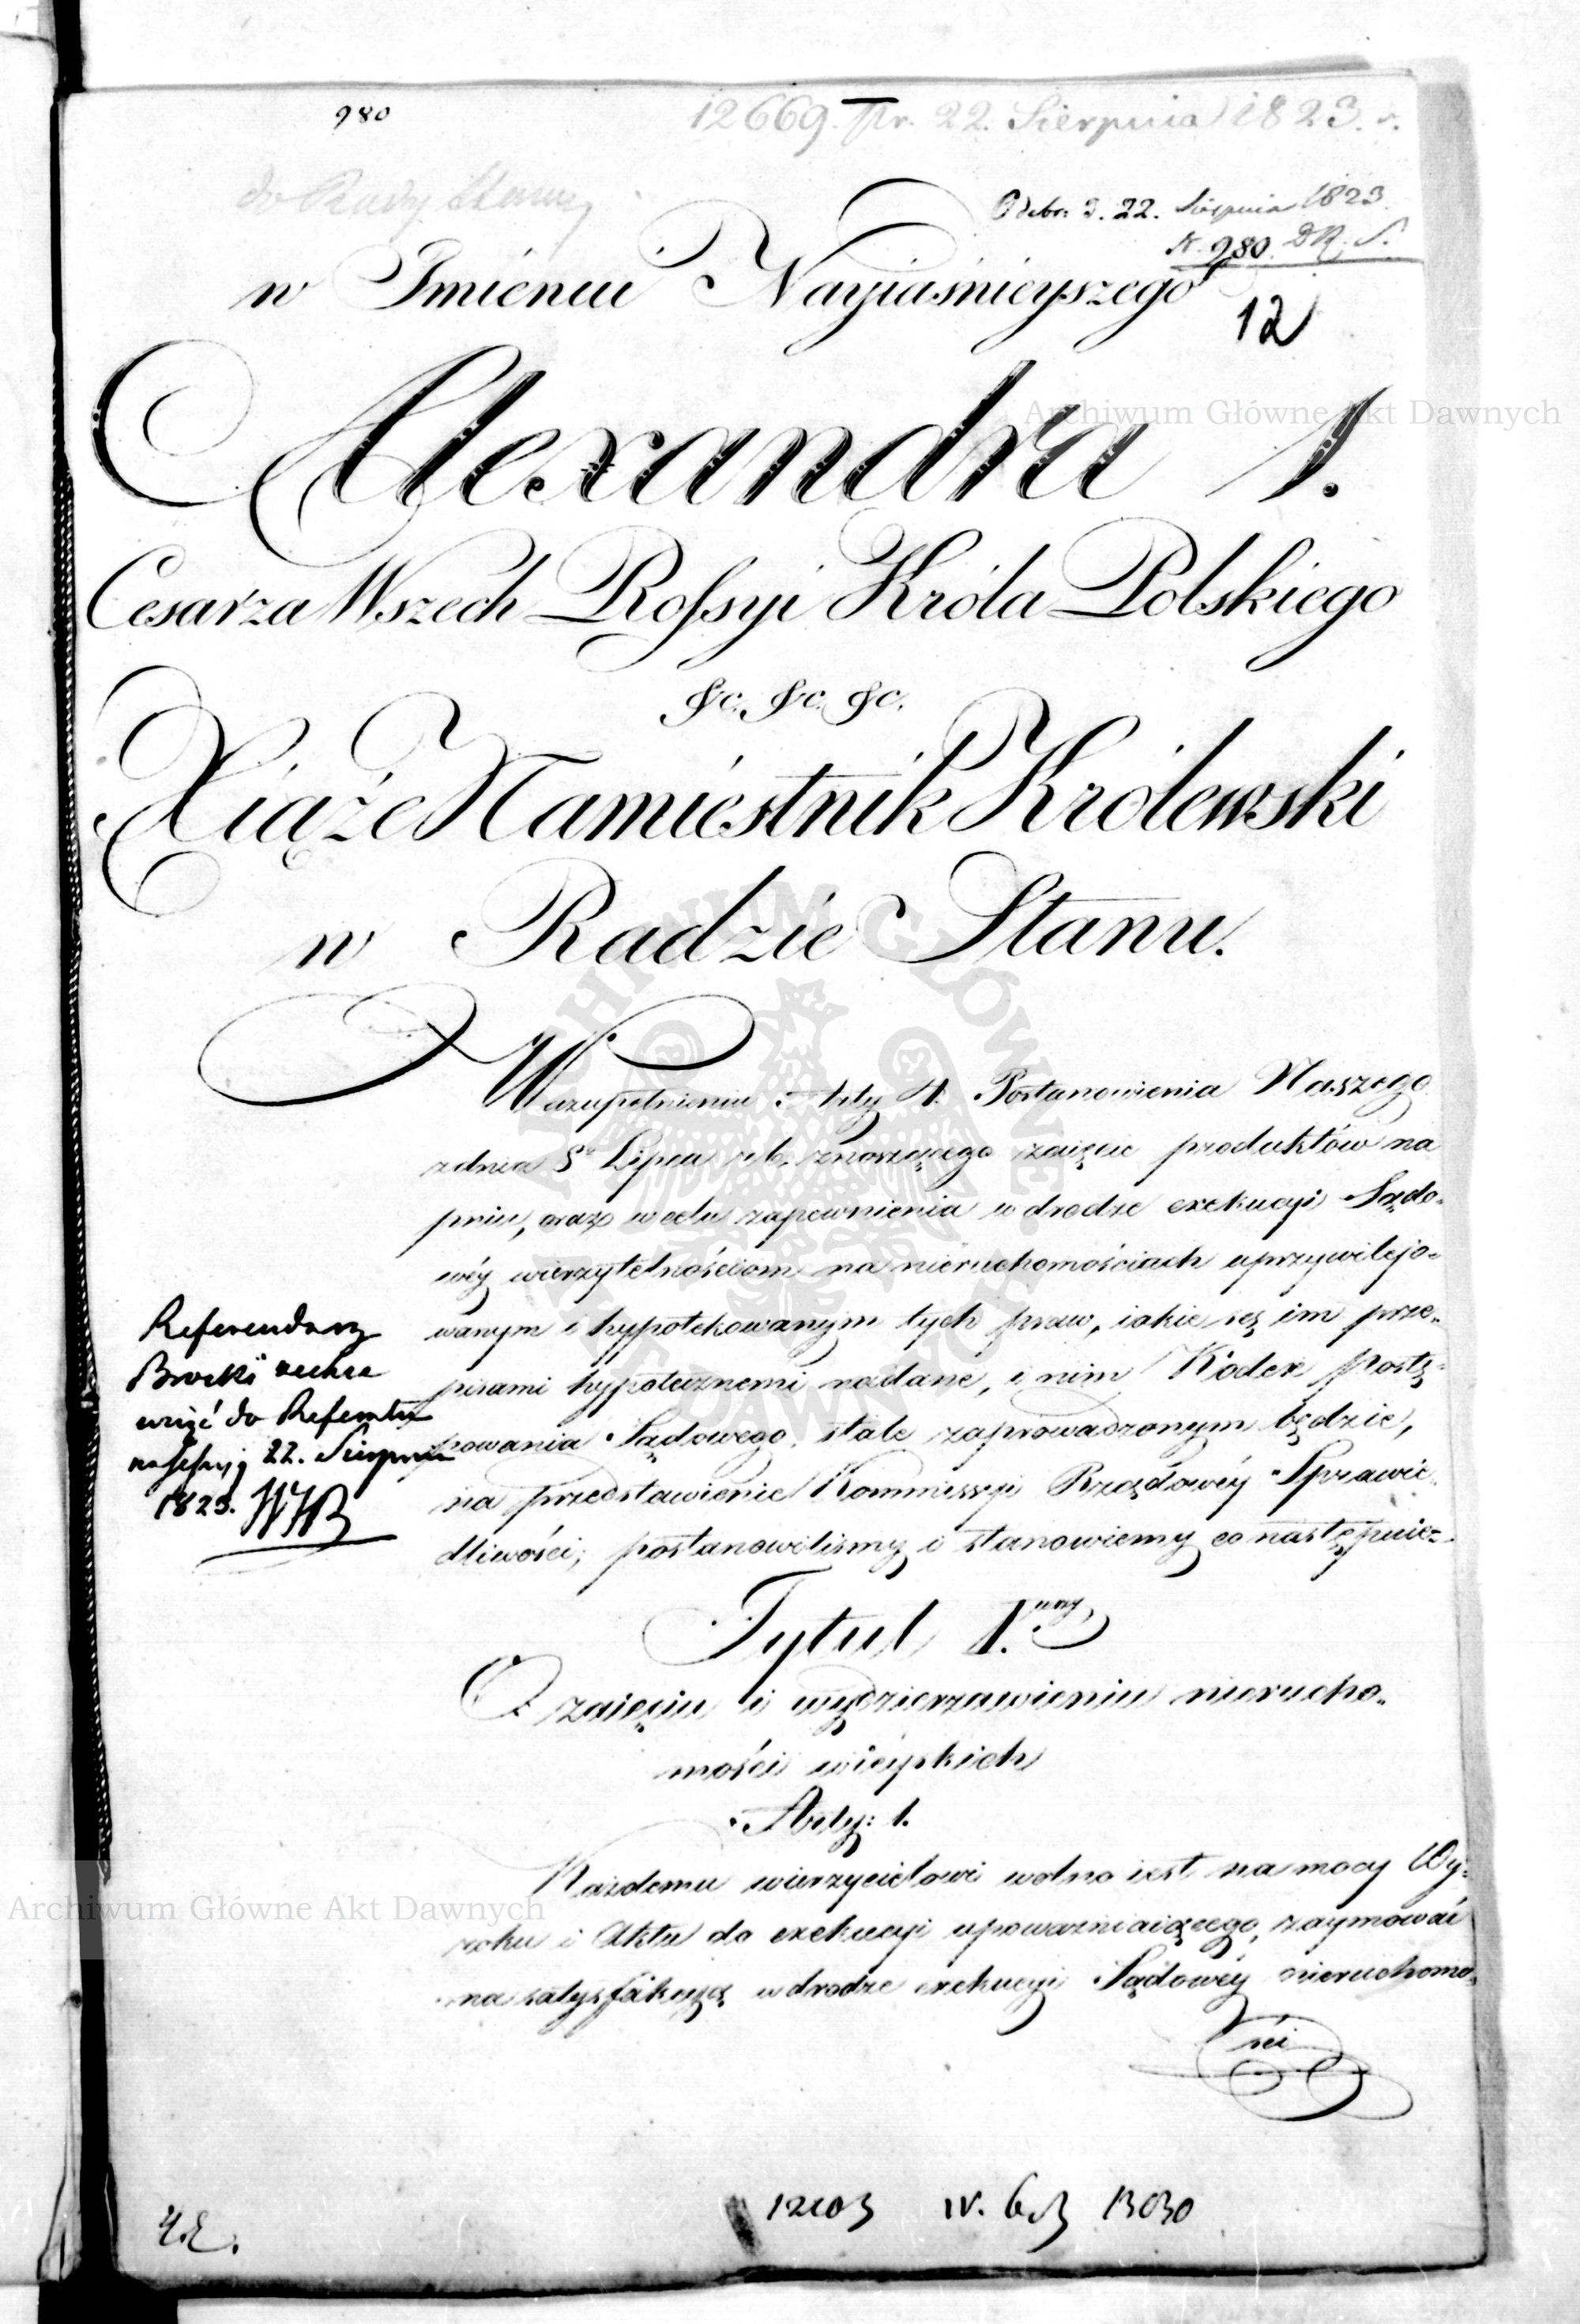 980
12669. Pr. 22. Sierpnia 1823. r.
do Rady Stanu
Odebr: d. 22. Sierpnia 1823.
N. 980. D.R.S.
12
w Imieniu Nayiaśnieyszego
Alexandra I.
Cesarza Wszech Rossyi Króla Polskiego
&c. &c. &c.
Xiąże Namiestnik Królewski
w Radzie Stanu.
W uzupełnieniu Arty 4. Postanowienia Naszego
z dnia 8º Lipca r. b. znoszącego zaięcie produktów na
pniu, oraz w celu zapewnienia w drodze exekucyi Sądo-
wéy wierzytelnościom na nieruchomościach uprzywilejo-
wanym i hypotekowanym tych praw, iakie są im prze-
pisami hypotecznemi nadane, i nim Kodex Postę-
powania Sądowego, stale zaprowadzonym będzie,
na przedstawienie Kommissyi Rządowéy Sprawie-
dliwości, postanowiliśmy i stanowiemy co następuie:
Referendarz
Brocki zechce
wziąć do Referatu
na Sessyią 22. Sierpnia
1823.
Tytuł 1.wszy
O zaięciu i wydzierzawieniu nierucho-
mości wieyskich
Arty: 1.
Każdemu wierzycielowi wolno iest na mocy Wy-
roku i Aktu do exekucyi upoważniaiącego, zaymować
na satysfakcyą w drodze exekucyi Sądowéy nieruchomo-
ści
12103 IV. 13030
Archiwum Główne Akt Dawnych
Archiwum Główne Akt Dawnych
ARCHIWUM GŁÓWNE AKT DAWNYCH